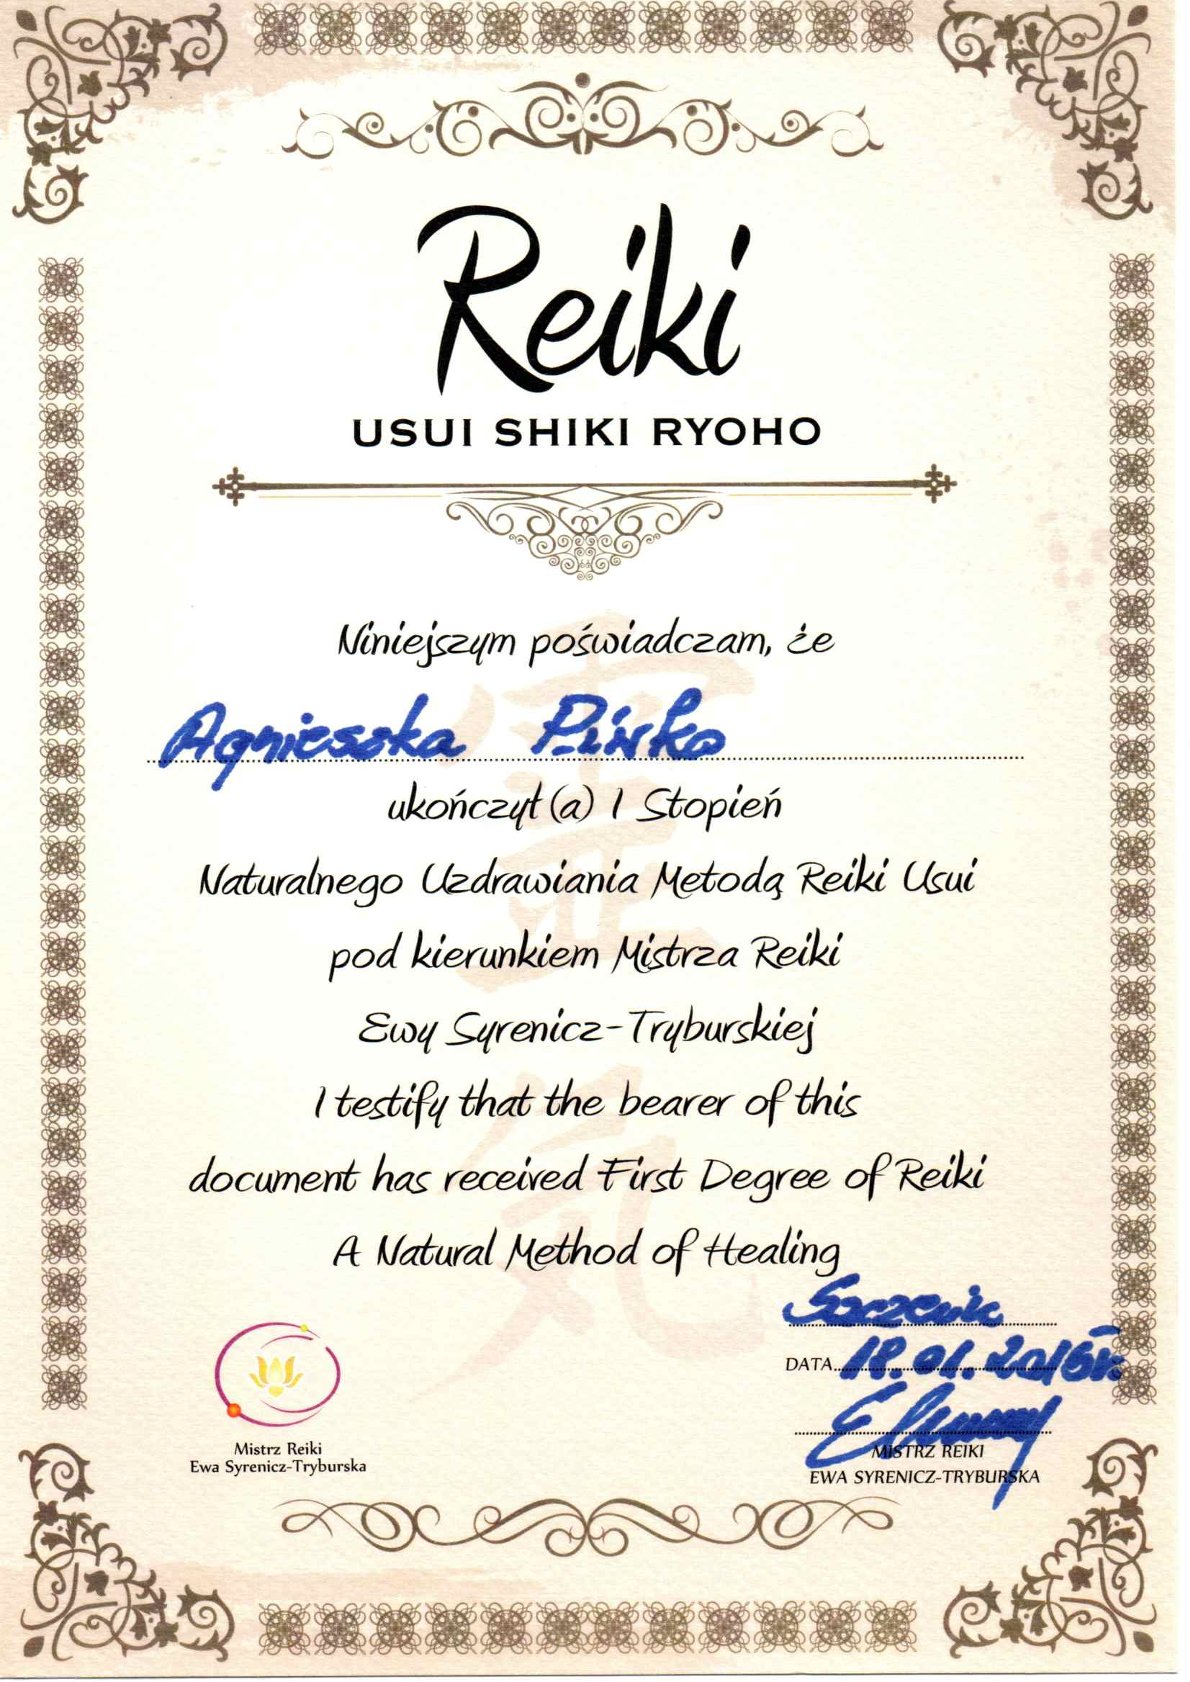 Reiki
USUI SHIKI RYOHO
Niniejszym poświadczam, że
Agnieszka Piwko
ukończył(a) I Stopień
Naturalnego Uzdrawiania Metodą Reiki Usui
pod kierunkiem Mistrza Reiki
Ewy Syrenicz-Tryburskiej
I testify that the bearer of this
document has received First Degree of Reiki
A Natural Method of Healing
DATA 18.01.2015r
Mistrz Reiki
Ewa Syrenicz-Tryburska
MISTRZ REIKI
EWA SYRENICZ-TRYBURSKA